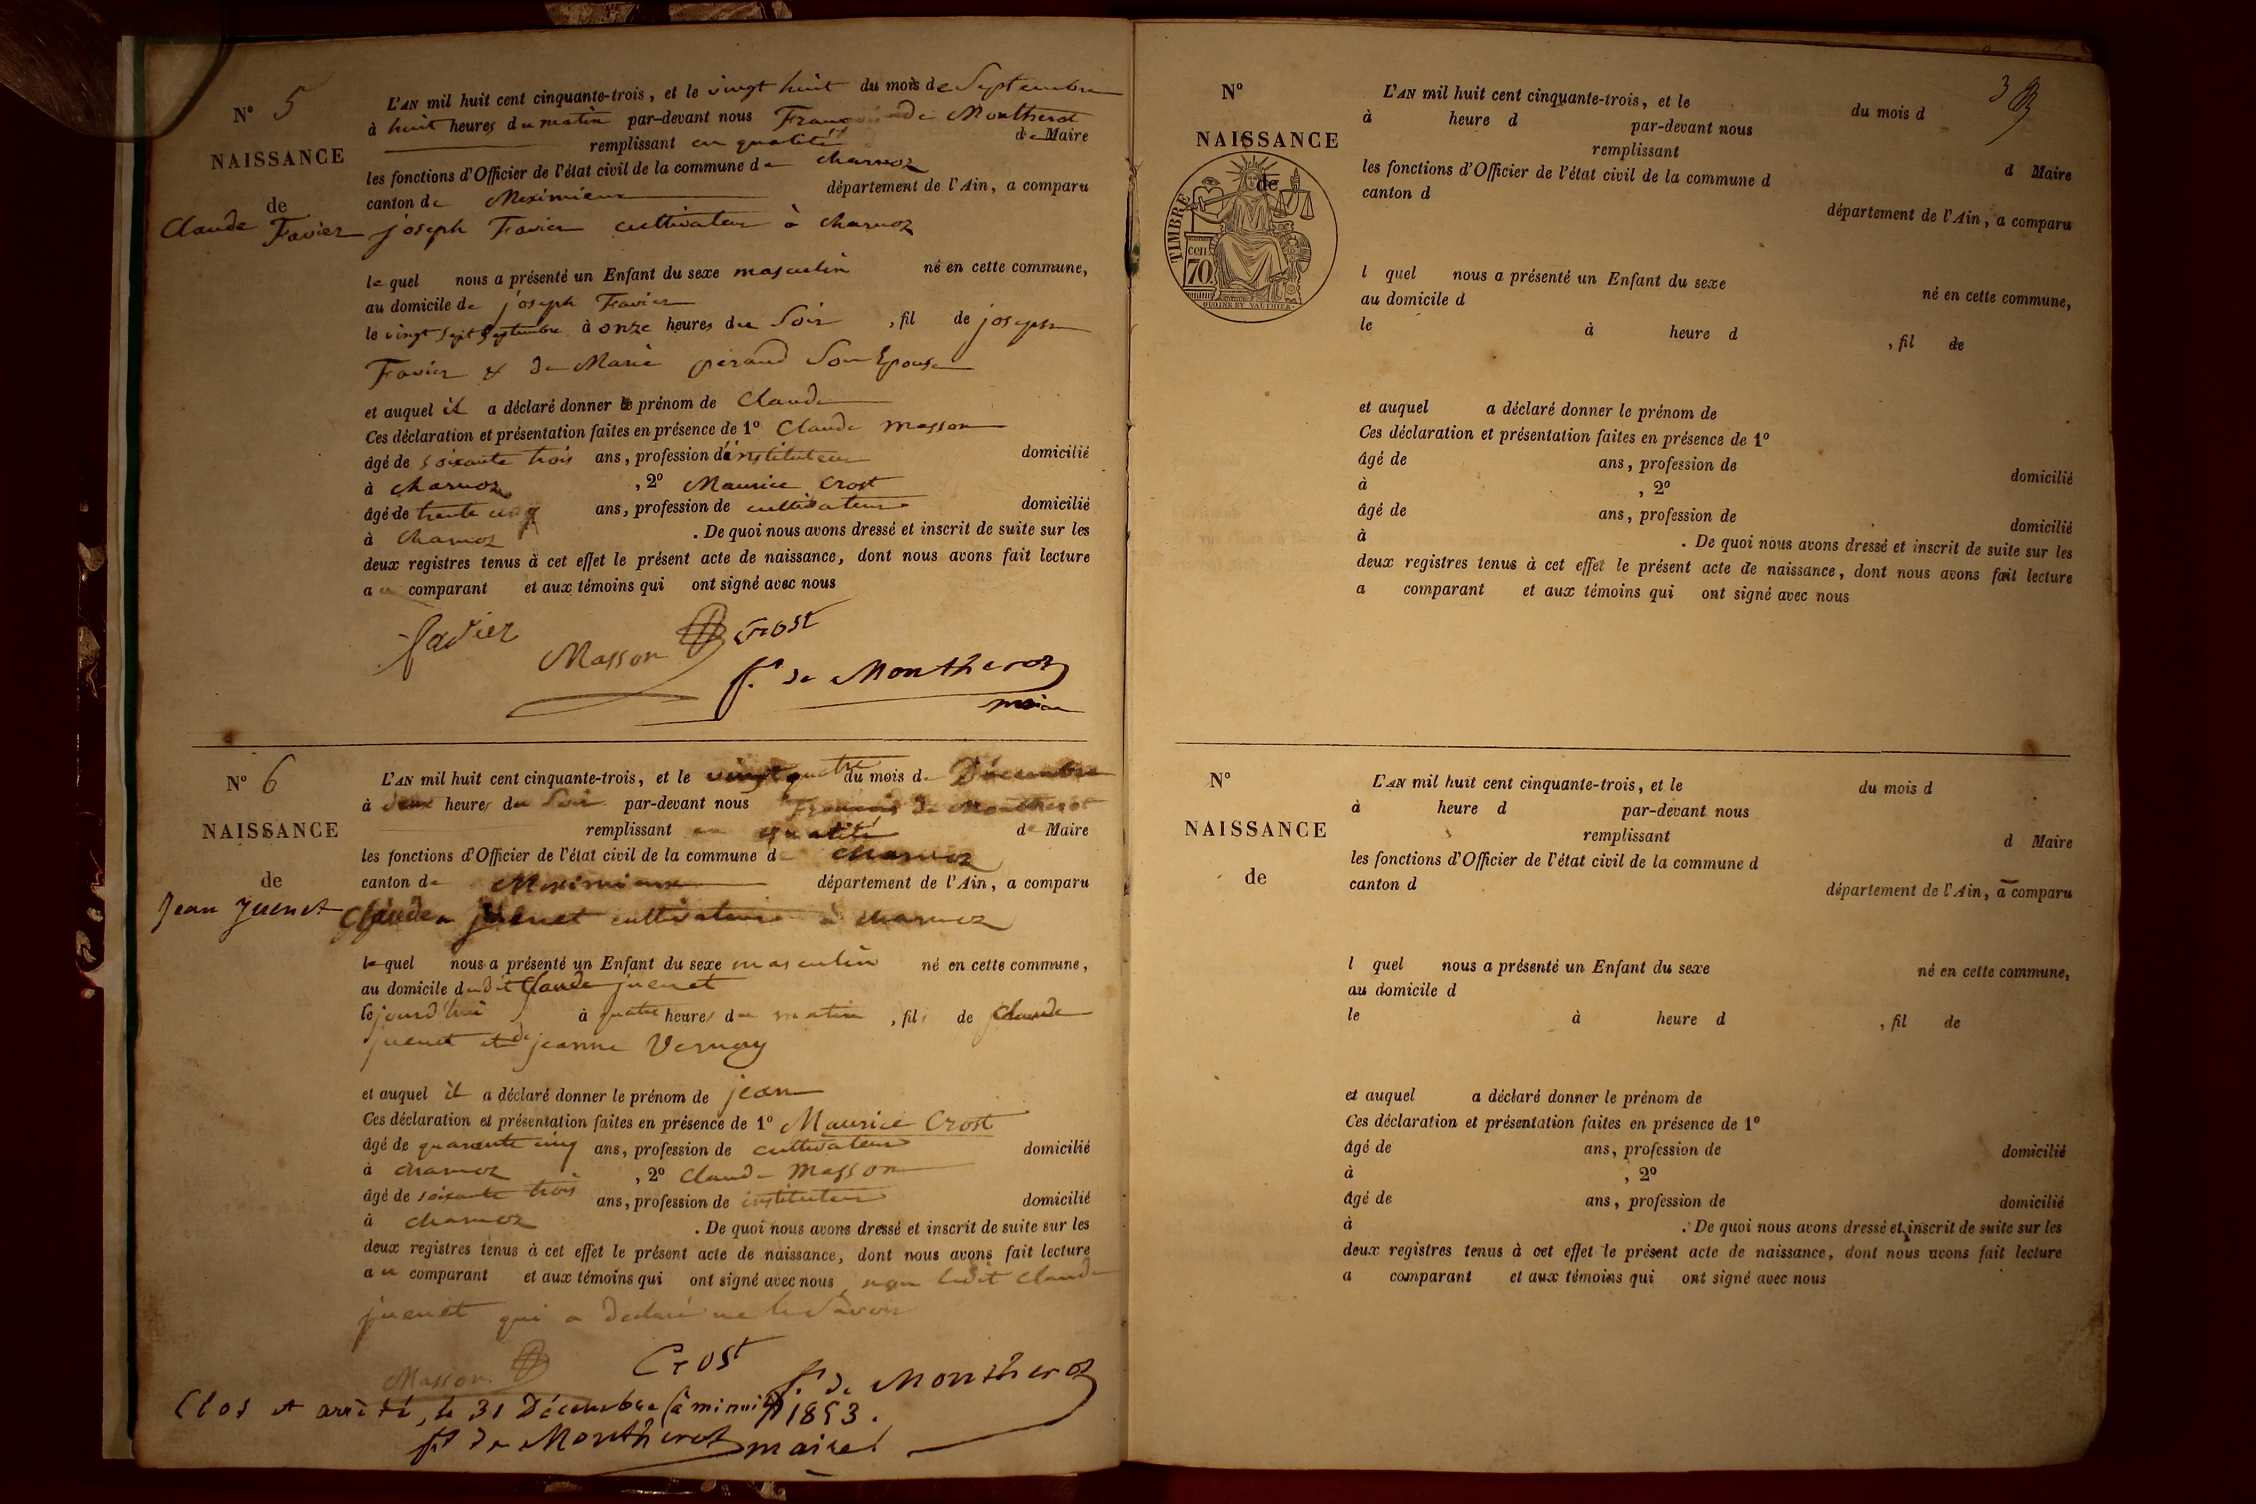 N° 5
NAISSANCE
de
Claude Favier
L'AN mil huit cent cinquante-trois, et le vingt huit du mois de Septembre
à huit heures du matin par-devant nous François de Montherot
remplissant en qualité de Maire
les fonctions d'Officier de l'état civil de la commune de charnoz
canton de Meximieux département de l'Ain, a comparu
joseph Favier cultivateur à charnoz
le quel nous a présenté un Enfant du sexe masculin né en cette commune,
au domicile de joseph Favier
le vingt sept Septembre à onze heures du Soir, fil de joseph
Favier & de Marie peraud Son Epouse
et auquel il a déclaré donner le prénom de Claude
Ces déclaration et présentation faites en présence de 1° Claude Masson
âgé de soixante trois ans, profession d'instituteur domicilié
à charnoz, 2° Maurice Crost
âgé de trente cinq ans, profession de cultivateur domicilié
à charnoz. De quoi nous avons dressé et inscrit de suite sur les
deux registres tenus à cet effet le présent acte de naissance, dont nous avons fait lecture
au comparant et aux témoins qui ont signé avec nous
favier
Masson Crost
f. de Montherot
maire
N° 6
NAISSANCE
de
Jean Juenet
L'AN mil huit cent cinquante-trois, et le vingt quatre du mois de Décembre
à deux heures du Soir par-devant nous François de Montherot
remplissant en qualité de Maire
les fonctions d'Officier de l'état civil de la commune de charnoz
canton de Meximieux département de l'Ain, a comparu
Claude juenet cultivateur à charnoz
le quel nous a présenté un Enfant du sexe masculin né en cette commune,
au domicile dudit Claude juenet
le jourd'hui à quatre heures du matin, fils de Claude
juenet et de jeanne Vernay
et auquel il a déclaré donner le prénom de jean
Ces déclaration et présentation faites en présence de 1° Maurice Crost
âgé de quarante cinq ans, profession de cultivateur domicilié
à charnoz, 2° Claude Masson
âgé de soixante trois ans, profession de instituteur domicilié
à charnoz. De quoi nous avons dressé et inscrit de suite sur les
deux registres tenus à cet effet le présent acte de naissance, dont nous avons fait lecture
au comparant et aux témoins qui ont signé avec nous, non ledit Claude
juenet qui a declaré ne le Savoir
Masson Crost f. de Montherot
Clos et arrêté, le 31 Décembre (à minuit) 1853.
f. de Montherot maire
3
N°
NAISSANCE
de
TIMBRE
cen
70
L'AN mil huit cent cinquante-trois, et le du mois d
à heure d par-devant nous
remplissant d Maire
les fonctions d'Officier de l'état civil de la commune d
canton d département de l'Ain, a comparu
l quel nous a présenté un Enfant du sexe né en cette commune,
au domicile d
le à heure d , fil de
et auquel a déclaré donner le prénom de
Ces déclaration et présentation faites en présence de 1°
âgé de ans, profession de domicilié
à , 2°
âgé de ans, profession de domicilié
à . De quoi nous avons dressé et inscrit de suite sur les
deux registres tenus à cet effet le présent acte de naissance, dont nous avons fait lecture
a comparant et aux témoins qui ont signé avec nous
N°
NAISSANCE
de
L'AN mil huit cent cinquante-trois, et le du mois d
à heure d par-devant nous
remplissant d Maire
les fonctions d'Officier de l'état civil de la commune d
canton d département de l'Ain, a comparu
l quel nous a présenté un Enfant du sexe né en cette commune,
au domicile d
le à heure d , fil de
et auquel a déclaré donner le prénom de
Ces déclaration et présentation faites en présence de 1°
âgé de ans, profession de domicilié
à , 2°
âgé de ans, profession de domicilié
à . De quoi nous avons dressé et inscrit de suite sur les
deux registres tenus à cet effet le présent acte de naissance, dont nous avons fait lecture
a comparant et aux témoins qui ont signé avec nous